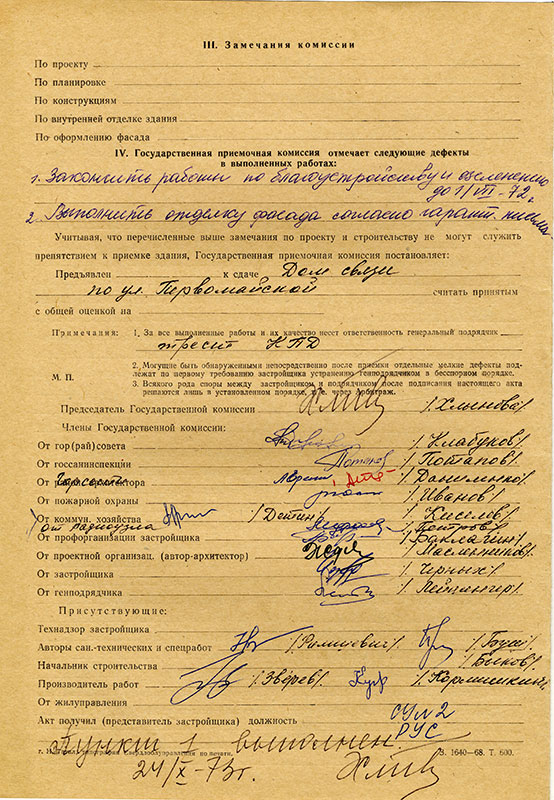 III. Замечания комиссии
По проекту
По планировке
По конструкциям
По внутренней отделке здания
По оформлению фасада
IV. Государственная приемочная комиссия отмечает следующие дефекты
в выполненных работах:
1. Закончить работы по благоустройству и озеленению
до 1/VIII-72г.
2. Выполнить отделку фасада согласно гарант. письма
Учитывая, что перечисленные выше замечания по проекту и строительству не могут служить
препятствием к приемке здания, Государственная приемочная комиссия постановляет:
Предъявлен к сдаче Дом связи
по ул. Первомайской считать принятым
с общей оценкой на
Примечания: 1. За все выполненные работы и их качество несет ответственность генеральный подрядчик
трест КПД
2. Могущие быть обнаруженными непосредственно после приемки отдельные мелкие дефекты под-
лежат по первому требованию застройщика устранению генподрядчиком в бесспорном порядке.
М. П.
3. Всякого рода споры между застройщиком и подрядчиком после подписания настоящего акта
решаются лишь в установленном порядке, т. е. через Арбитраж.
Председатель Государственной комиссии
Члены Государственной комиссии:
От гор(рай)совета /Клабуков/
От госсанинспекции /Потапов/
От архитектора /Данименко/
От пожарной охраны /Иванов/
От коммун. хозяйства /Киселев/
от радиоузла /Петров/
От профорганизации застройщика /Баклачин/
От проектной организац. (автор-архитектор) /Масленников/
От застройщика /Черных/
От генподрядчика /Лейтингер/
Присутствующие:
Технадзор застройщика
Авторы сан.-технических и спецработ
Начальник строительства /Быков/
Производитель работ /Зверев/
От жилуправления
Акт получил (представитель застройщика) должность
Пункт 1 выполнен.
З. 1640—68. Т. 600.
24/X-73г.